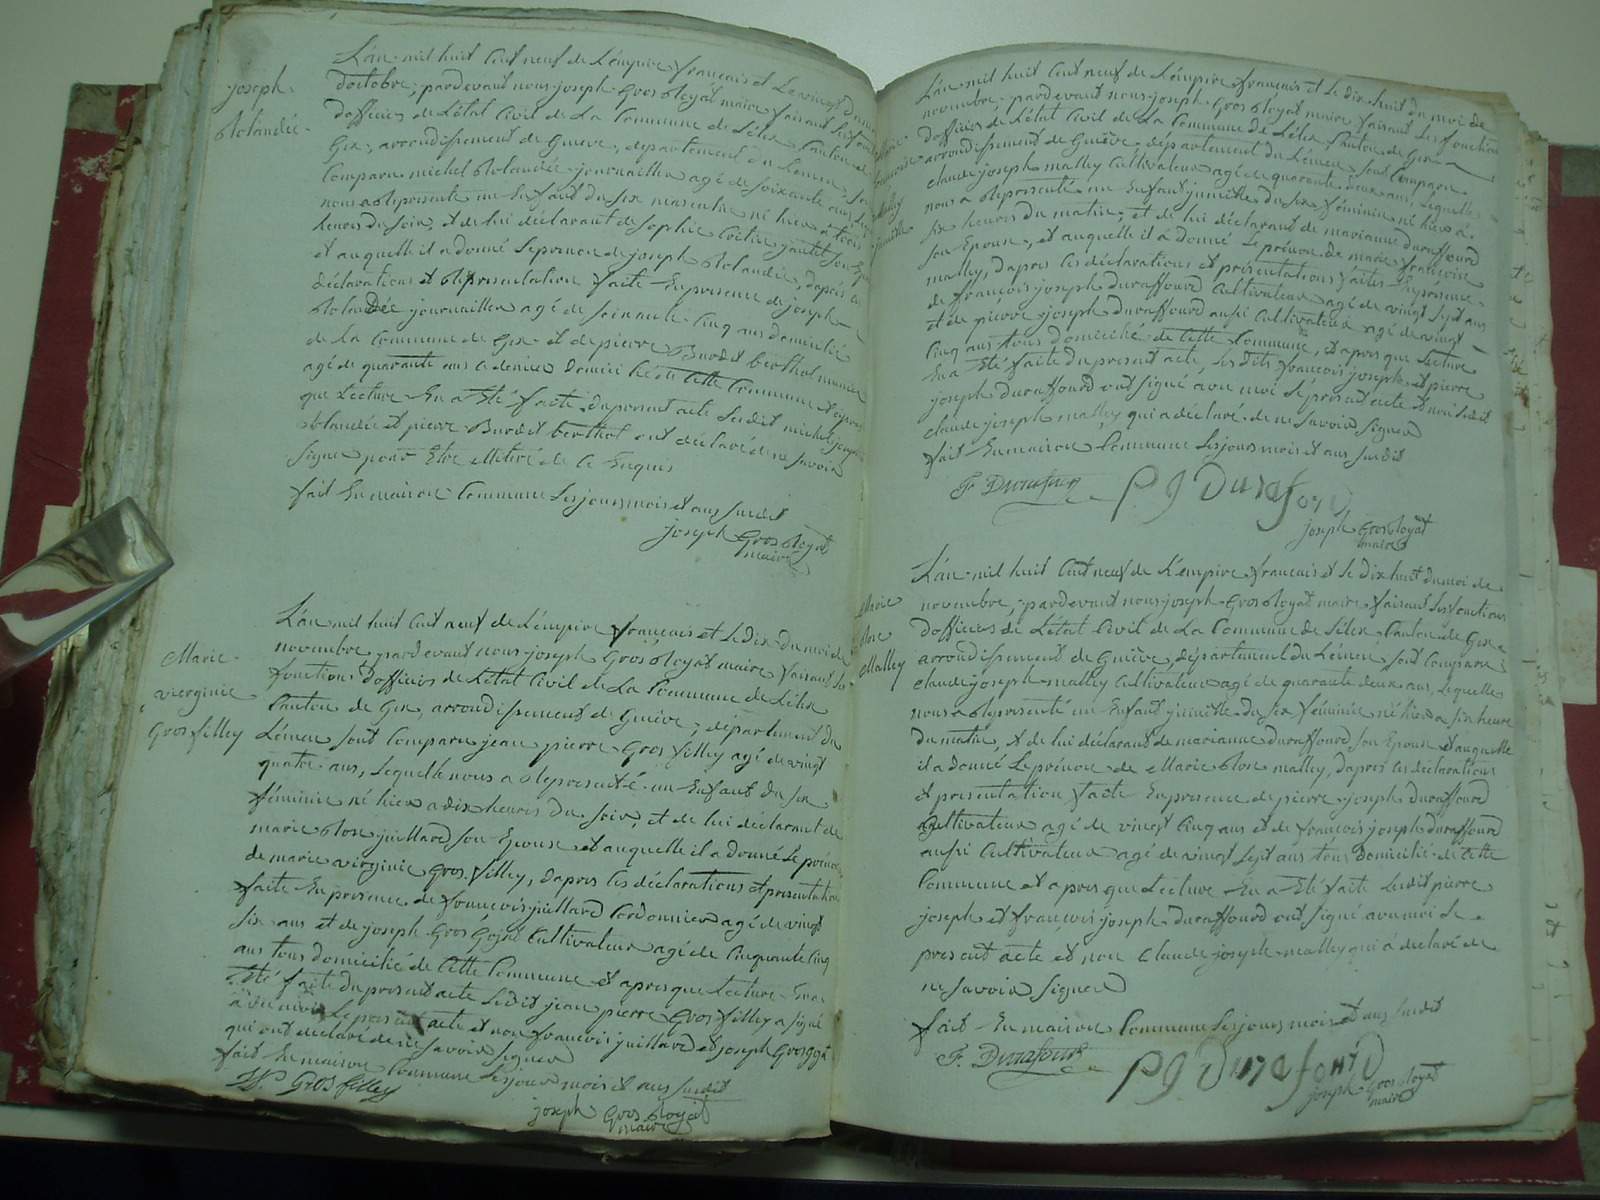 joseph
Rolandée
L'an mil huit Cent neuf de L'empire français et Le vingt
doctobre, pardevant nous joseph Gros Royat maire faisant Les
d'officiers de L'état Civil de La Commune de Lélex Canton de
Gex, arrondissement de Genève, département du Léman, sont
Comparu michel Rolandée journaillier agé de soixante ans
nous a Représenté un Enfant du sex masculin né hier à trois
heures du soir, et de lui déclarant de Sophie
et auquelle il a donné Le prenom de joseph Rolandée, dapres Les
déclarations et Représentation faite En presence de joseph
Rolandée journaillier agé de soixante Cinq ans domicilié
de la Commune de Gex et de pierre Burdet berthol
agé de quarante ans Ce dernier domicilié de Cette Commune et apres
que Lecture En a Eté faite du present acte Lesdit michel joseph
Rolandée et pierre Burdet berthol ont déclaré de ne savoir
signer pour Etre de Ce Enquis
fait En maison Commune Les jours mois et ans susdit
joseph Gros Royat
maire
Marie
virginie
Gros filley
L'an mil huit Cent neuf de L'empire français et Le dix du moi de
novembre, pardevant nous joseph Gros Royat maire faisant Les
fonctions d'officiers de L'état Civil de La Commune de Lélex
Canton de Gex, arrondissement de Genève, département du
Lémen sont Comparu jean pierre Gros filley agé de vingt
quatre ans, Lequelle nous a Represénté un Enfant du sex
féminin né hier a dix heures du soir, et de lui déclarant de
marie Rose juillard son Epouse et auquelle il a donné Le prénon
de marie virginie Gros filley, dapres Les déclarations et présentation
faite En presence de françois juillard Cordonnier agé de vingt
six ans et de joseph Gros Gojat Cultivateur agé de Cinquante Cinq
ans tous domicilié de Cette Commune et apres que Lecture En a
Eté faite du present acte Ledit jean pierre Gros filley a signé
avec moi Le present acte et non françois juillard et joseph Gros Gojat
qui ont déclaré de ne savoir signer
fait En maison Commune Les jour mois et ans susdit
JP Gros filley
joseph Gros Royat
maire
L'an mil huit Cent neuf de L'empire français et Le dix huit du moi de
novembre pardevant nous joseph Gros Royat maire faisant Les fonction
d'officiers de L'état Civil de La Commune de Lélex Canton de Gex
arrondissement de Genève, département du Lémen sont Comparu
claude joseph malley Cultivateur agé de quarante deux ans, Lequelle
nous a Réprésenté un Enfant jumelle du sex féminin né hier à
six heures du matin, et de lui déclarant de marianne duraffourd
son Epouse, et auquelle il à donné Le prénon de marie françoise
malley, dapres Les déclarations et présentations faites En présence
de françois joseph duraffourd Cultivateur agé de vingt sept ans
et de pierre joseph duraffourd aussi Cultivateur agé de vingt
Cinq ans tous domicilié de Cette Commune, et apres que Lecture
En a Eté faite du present acte, Les dits françois joseph et pierre
joseph duraffourd ont signé avec moi Le présent acte et non Ledit
claude joseph malley qui a déclaré de ne savoir signer
fait En maison Commune Les jours mois et ans susdit
F. Durafour P J Durafourd
joseph Gros Royat
maire
Marie
Rose
Malley
L'an mil huit Cent neuf de L'empire français et Le dix huit du moi de
novembre, pardevant nous joseph Gros Royat maire faisant Les fonctions
d'officiers de L'état Civil de La Commune de Lélex Canton de Gex
arrondissement de Genève, département du Lémen sont Comparu
claude joseph malley Cultivateur agé de quarante deux ans, Lequelle
nous a Représenté un Enfant jumelle du sex féminin né hier a six heure
du matin, et de lui déclarant de marianne duraffourd son Epouse et auquelle
il a donné Le prénon de Marie Rose malley, dapres Les déclarations
et présentation faite En presence de pierre joseph duraffourd
Cultivateur agé de vingt Cinq ans et de françois joseph duraffourd
aussi Cultivateur agé de vingt sept ans tous domicilié de Cette
Commune et apres que Lecture En a Eté faite Ledit pierre
joseph et françois joseph duraffourd ont signé avec moi Le
present acte et non Claude joseph malley qui à declaré de
ne savoir signer
fait En maison Commune Les jours mois et ans susdit
F. Durafour P J Durafourd
joseph Gros Royat
maire